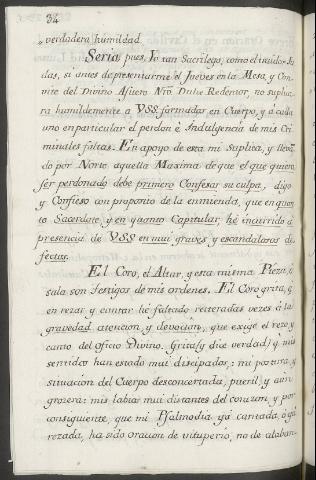 34
„verdadera humildad.
Seria pues, Yo tan Sacrilego, como el traidor Ju-
das, si antes de presentarme el Jueves en la Mesa, y Con-
vite del Divino Asuero Ntro Dulce Redentor, no suplica-
ra humildemente a VSS formados en Cuerpo, y à cada
uno en particular el perdon è Indulgencia de mis Cri-
minales faltas. En apoyo de esta mi Suplica, y lleva-
do por Norte aquella Maxima de que el que quiere
ser perdonado debe primero Confesar su culpa, digo
y Confieso con proposito de la enmienda, que en quan-
to Sacerdote y en quanto Capitular, hé incurrido à
presencia de VSS en mui graves y escandalosos de-
fectos.
El Coro, el Altar, y esta misma Pieza, ò
sala son testigos de mis ordenes. El Coro grita, q
en rezar y cantar hé faltado reiteradas veces à la
gravedad atencion, y devocion, que exige el rezo, y
canto del oficio Divino. Grita (y dice verdad) q mis
sentidos han estado mui disipados; mi postura, y
situacion del Cuerpo desconcertada, pueril, y aun
grosera: mis labios mui distantes del corazon; y por
consiguiente, que mi Psalmodia yá cantada, ò yá
rezada, ha sido oracion de vituperio, no de alaban-